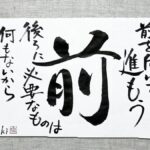 前を向いて
進もう
前
後ろに必要なものは
何もないから